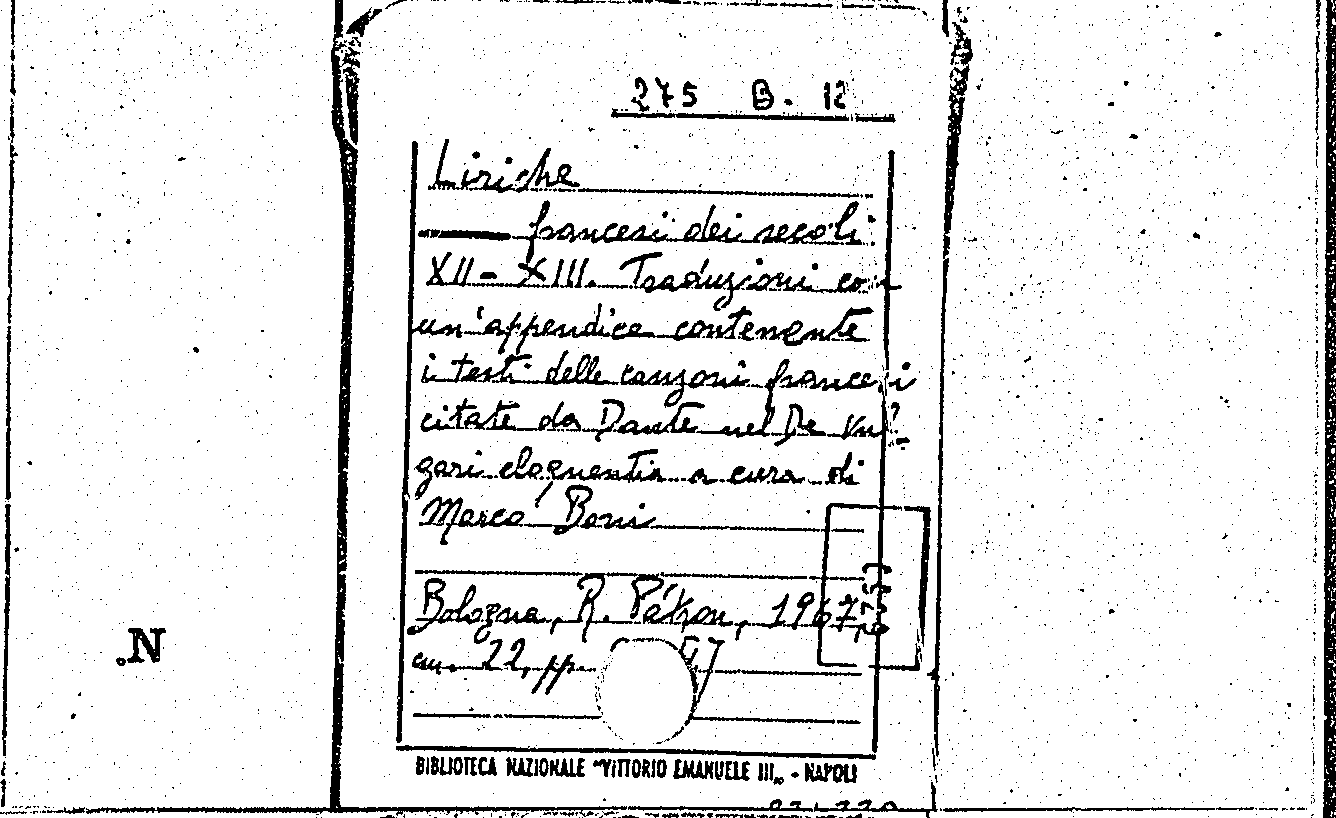 275 B. 12
Liriche
francesi dei secoli
XII - XIII. Traduzioni con
un'appendice contenente
i testi delle canzoni francesi
citate da Dante nel De Vul-
gari eloquentia a cura di
Marco Boni
Bologna, R. Pàtron, 1967,
cm. 22, pp.
BIBLIOTECA NAZIONALE "VITTORIO EMANUELE III„ - NAPOLI
N.